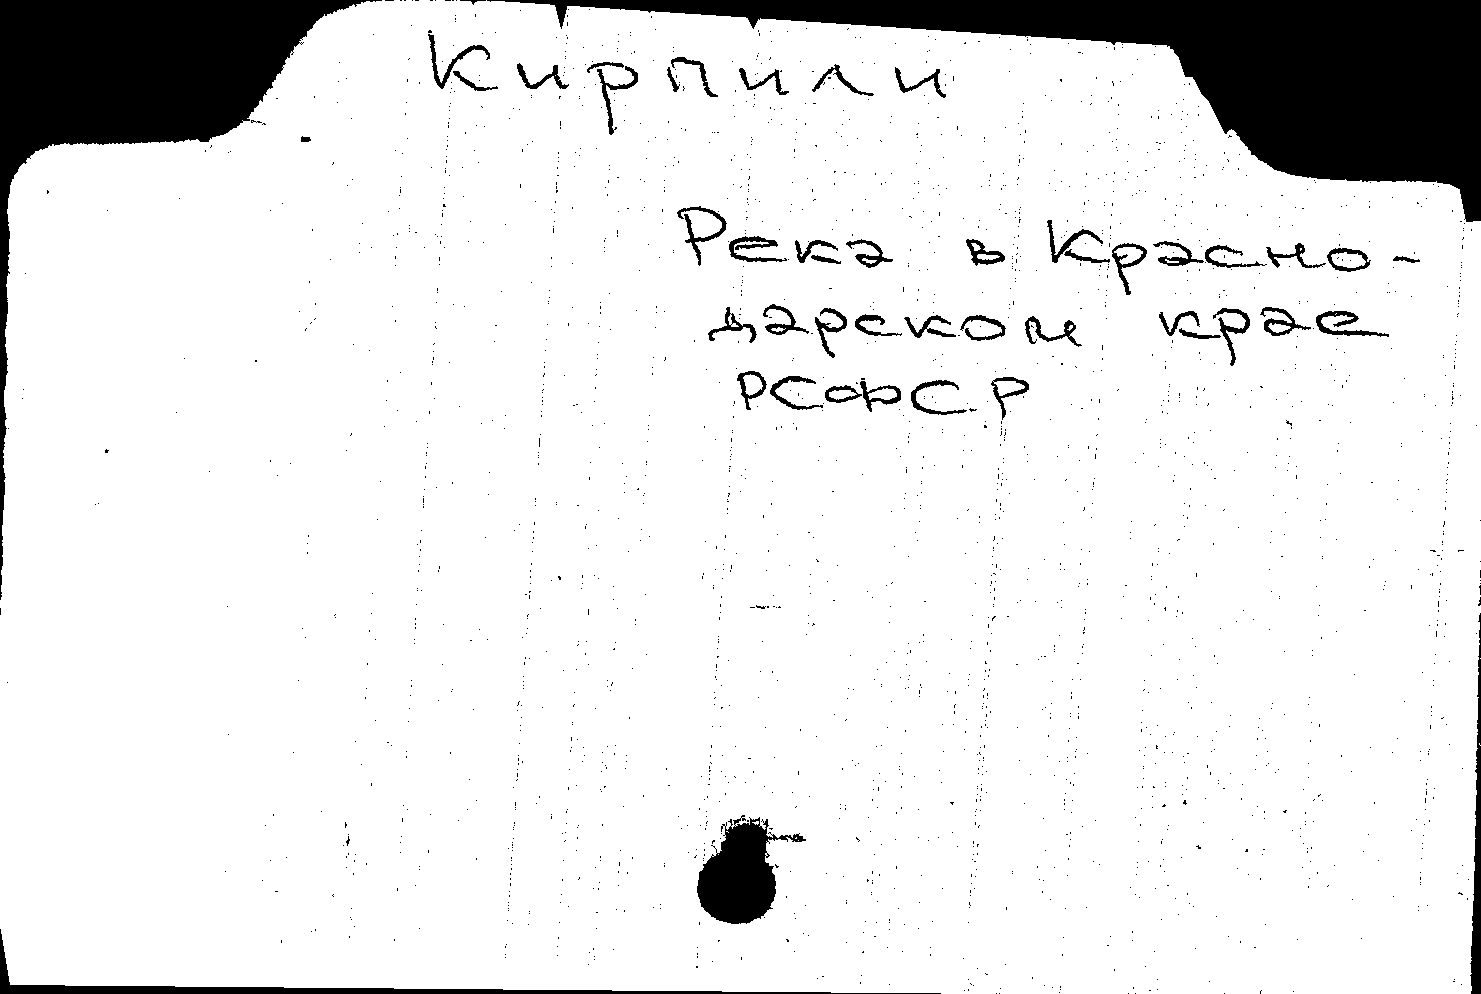 Кирпили
Река в Красно-
дарском крае
РСФСР